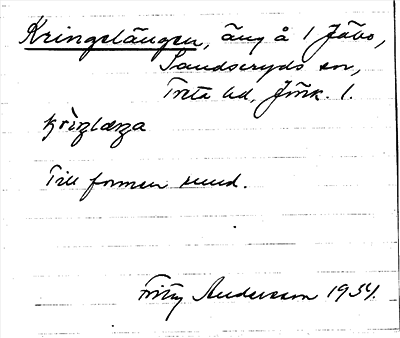 Kringelängen, äng å 1 Jäbo,
Sandseryds sn,
Tveta hd, Jönk. l.
Till formen rund.
Fritz Andersson 1934.